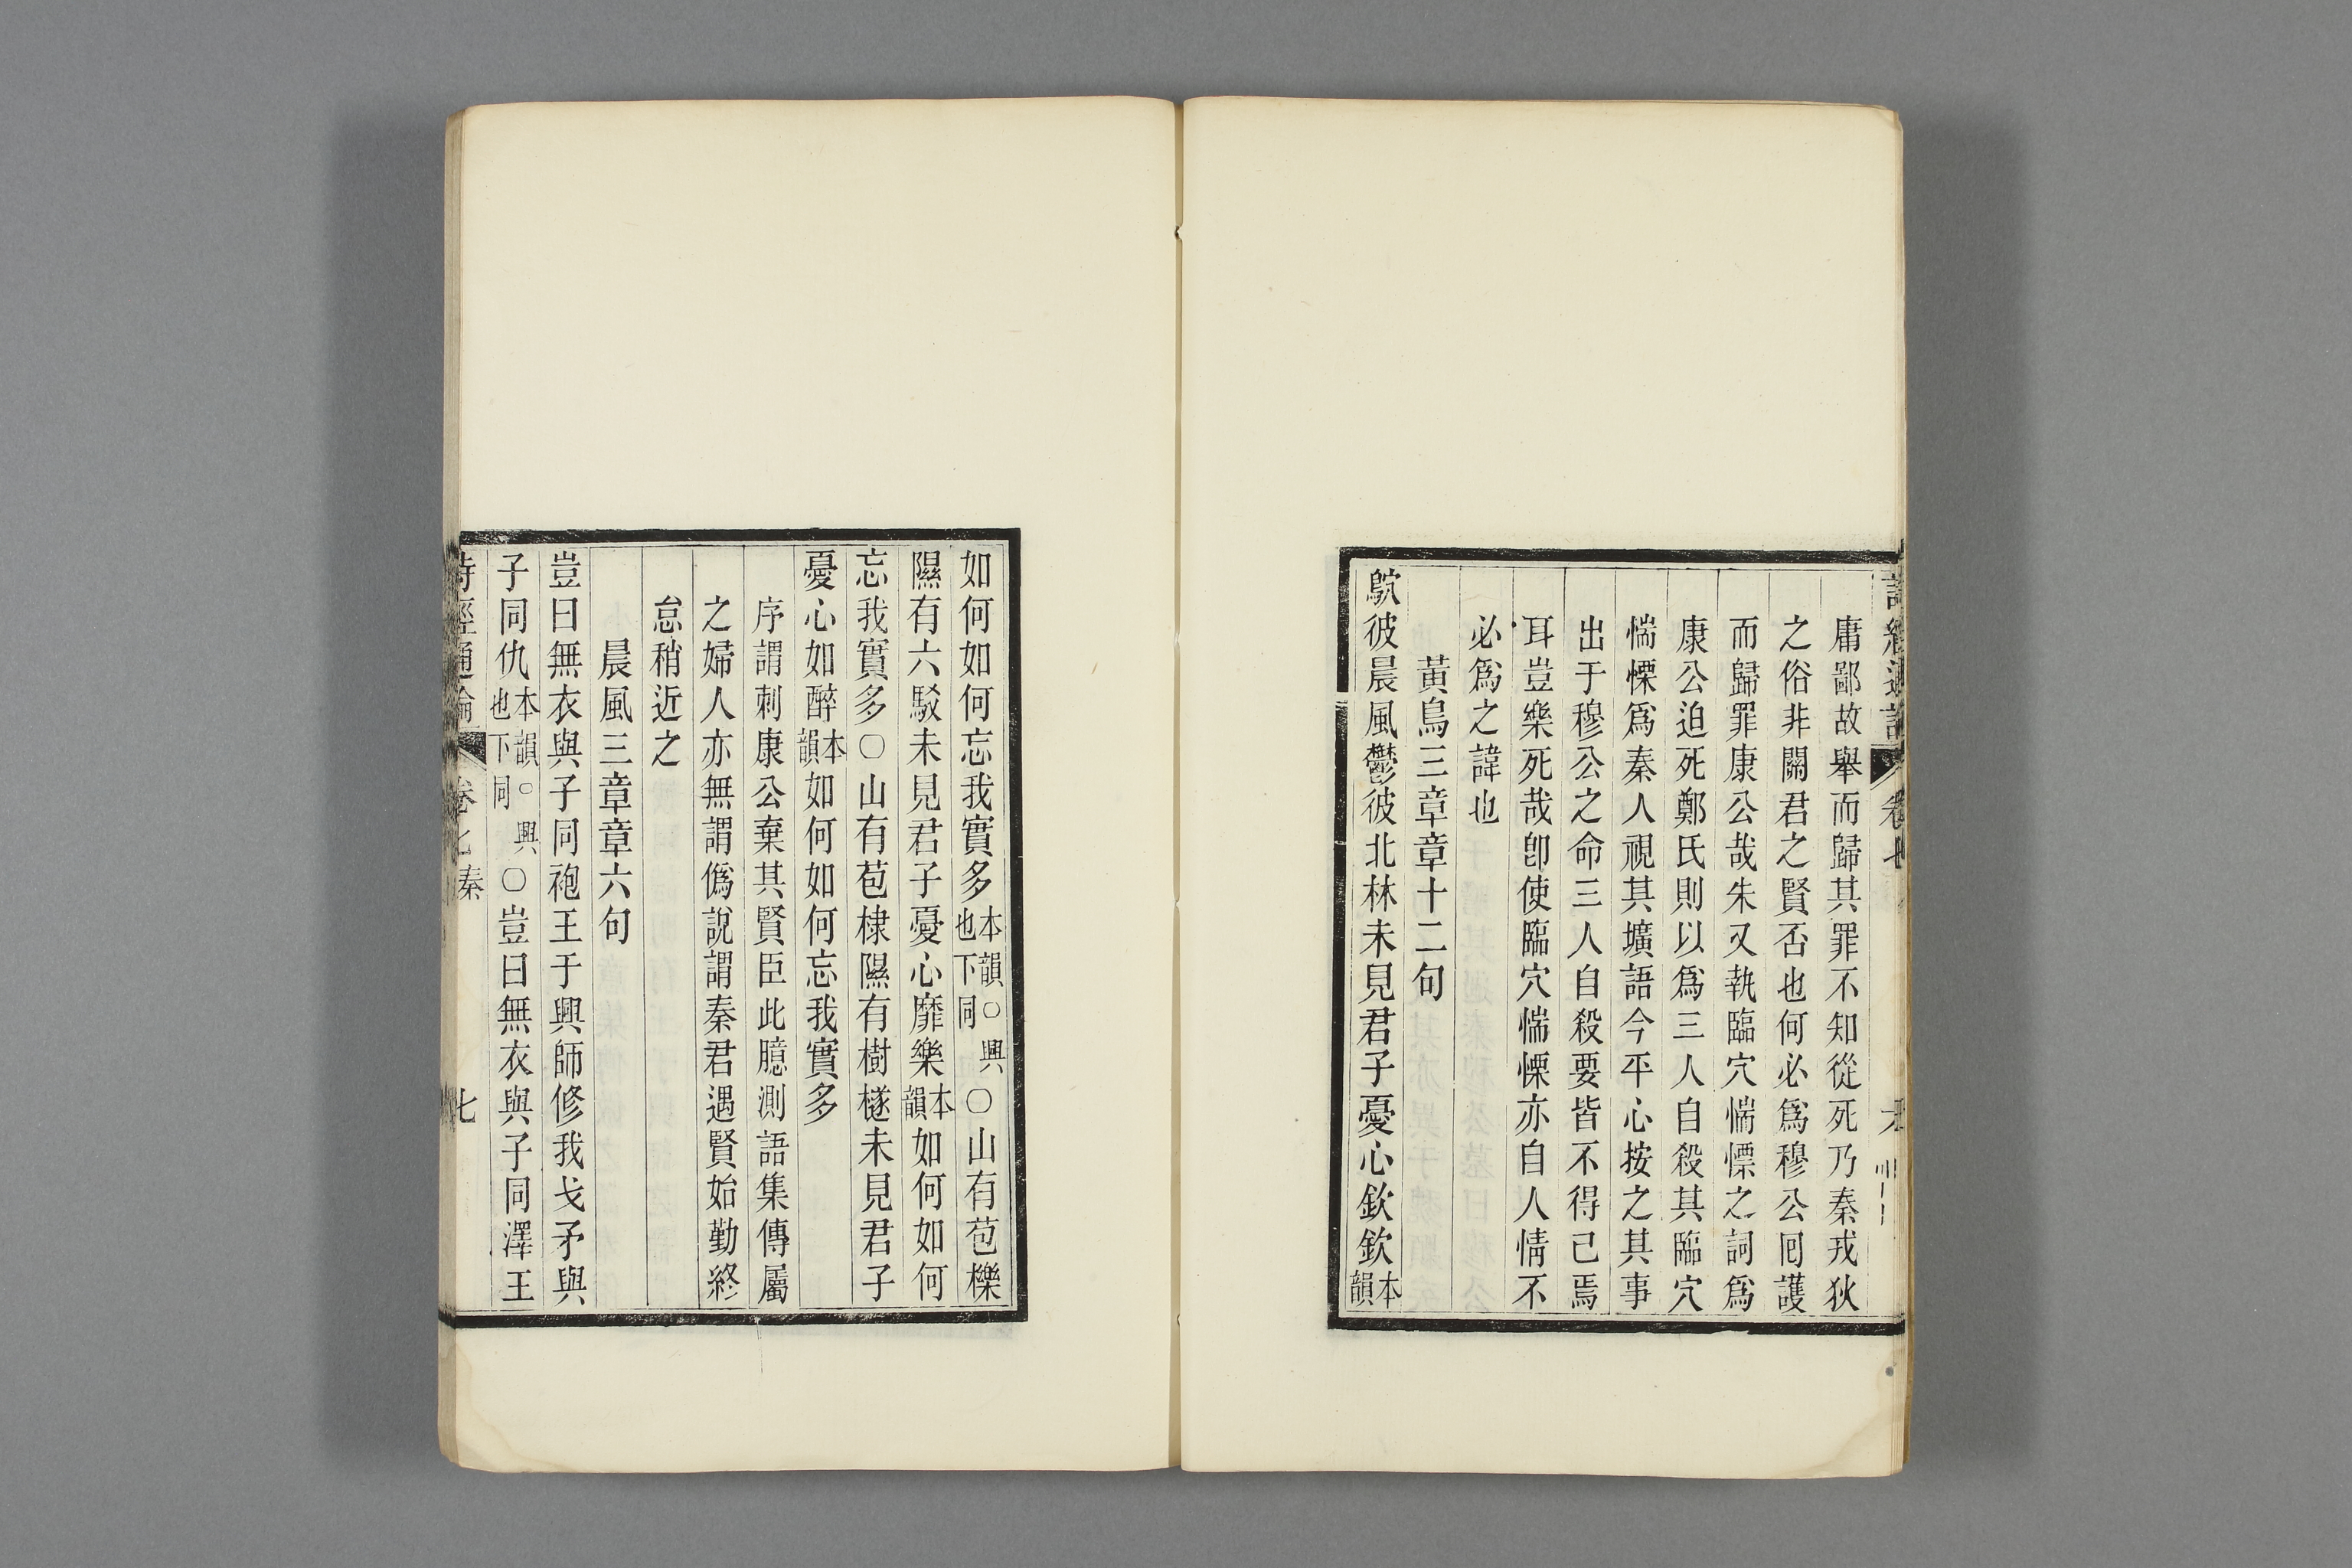 庸鄙故舉而歸其罪不知從死乃秦戎狄
之俗非關君之賢否也何必爲穆公囘護
而歸罪康公哉朱又執臨穴惴慄之詞爲
康公迫死鄭氏則以爲三人自殺其臨穴
惴慄爲秦人視其壙語今平心按之其事
出于穆公之命三人自殺要皆不得已焉
耳豈樂死哉卽使臨穴惴慄亦自人情不
必爲之諱也
黃鳥三章章十二句
鴥彼晨風鬱彼北林未見君子憂心欽欽本韻
如何如何忘我實多本韻○興也下同○山有苞櫟
隰有六駁未見君子憂心靡樂本韻如何如何
忘我實多○山有苞棣隰有樹檖未見君子
憂心如醉本韻如何如何忘我實多
序謂刺康公棄其賢臣此臆測語集傳屬
之婦人亦無謂僞說謂秦君遇賢始勤終
怠稍近之
晨風三章章六句
豈曰無衣與子同袍王于興師修我戈矛與
子同仇本韻○興也下同○豈曰無衣與子同澤王
詩經通論 卷七秦 七